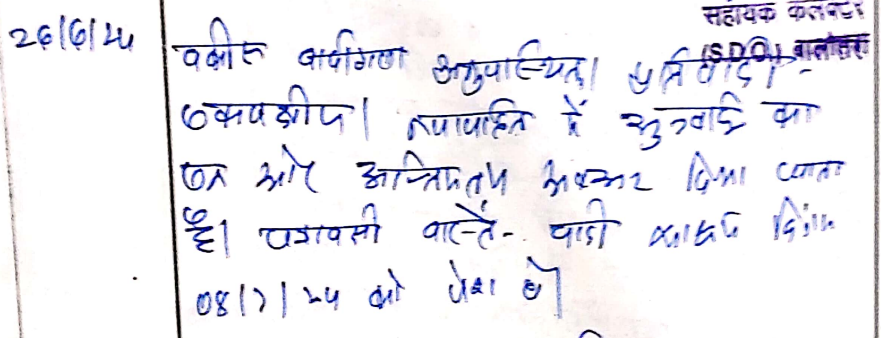 सहायक कलक्टर
(SDO) बालोतरा
26/6/24
वकील वादीगण अनुपस्थित। प्रतिवादी-
एकपक्षीय। न्यायहित में सुनवाई का
एक और अन्तिमतम अवसर दिया जाता
है। पत्रावली वास्ते- वादी साक्ष्य दिनांक
08/7/24 को पेश हो।